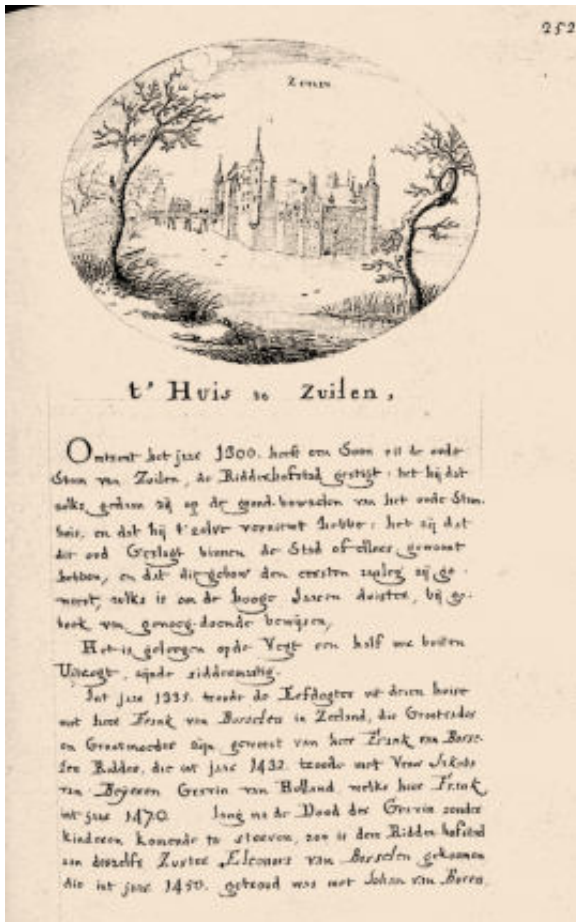 252
Zuilen
t' Huis te Zuilen,
Omtrent het jare 1300. heeft een Soon uit de oude
Stam van Zuilen, de Ridderhofstad gestigt: het zij dat
zulks gedaan zij op de grond
huis, en dat hij 't zelve vernieut hebbe: het zij dat
dit oud Geslagt binnen de Stad of elders gewoont
hebben, en dat dit gebow den eersten zij ge-
weest, zulks is om de hooge Jaren duister, bij ge-
brek van genoeg-doende bewijsen,
Het is gelegen op de Vegt een half ure buiten
Uitregt, zijnde riddermatig.
Int jare 1335. troude de Erfdogter uit desen huise
met heer Frank van Borselen in Zeeland, die Grootvader
en Grootmoeder zijn geweest van heer Frank van Borse-
len Ridder, die int jare 1432. troude met Vrow Jakoba
van Beyeren Gravin van Holland, welke heer Frank
int jare 1470. lang na de Dood der Gravin zonder
kinderen komende te sterven, zoo is dese Ridderhofstad
aan deszelfs Zuster Eleonora van Borselen gekoomen
die int jare 1450. getroud was met Johan van Buren